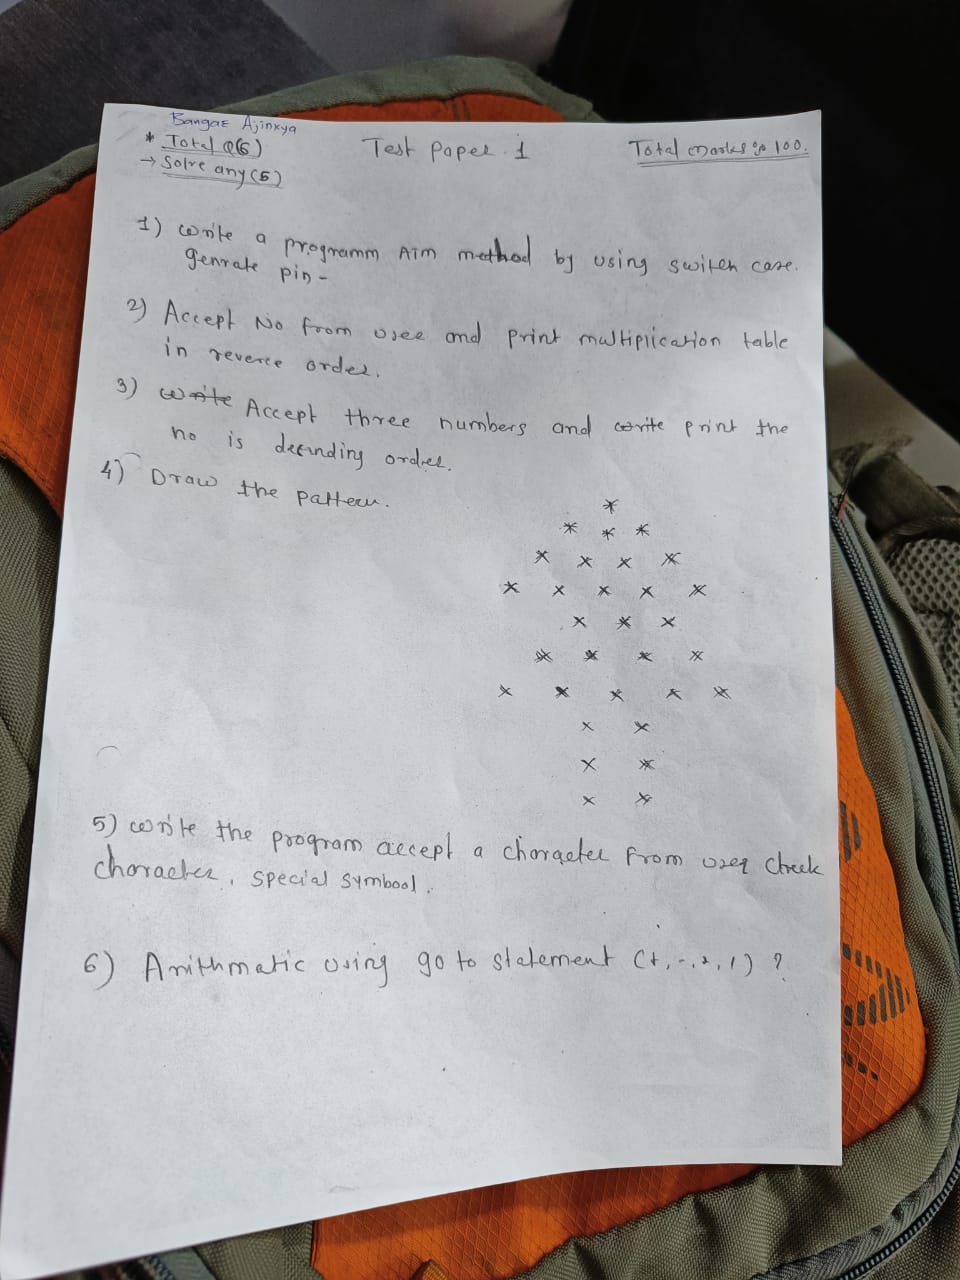 Bangar Ajinkya
* Total Q(6)
→ Solve any (5)
Test Paper. 1
Total marks 100.
1) write a programm ATM method by using switch case.
genrate pin -
2) Accept No from user and print multiplication table
in reverce order.
3) write Accept three numbers and write print the
no is decending order.
4) Draw the pattern.
*
* * *
* * * *
* * * * *
* * *
* * * *
* * * * *
* *
* *
* *
5) write the program accept a character from user check
character, special symbool.
6) Arithmatic using go to statement (+, -, *, /) ?